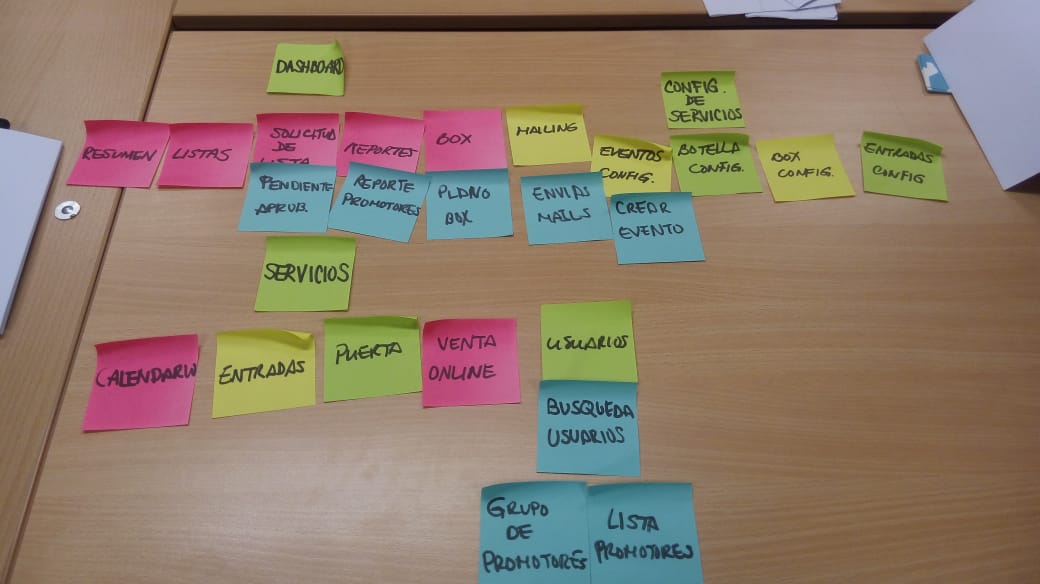 DASHBOARD
CONFIG.
DE
SERVICIOS
RESUMEN
LISTAS
SOLICITUD
DE
LISTA
REPORTES
BOX
MAILING
EVENTOS
CONFIG.
BOTELLA
CONFIG.
BOX
CONFIG.
ENTRADAS
CONFIG
PENDIENTE
APRUB.
REPORTE
PROMOTORES
PLANO
BOX
ENVIAS
MAILS
CREAR
EVENTO
SERVICIOS
CALENDARIO
ENTRADAS
PUERTA
VENTA
ONLINE
USUARIOS
BUSQUEDA
USUARIOS
GRUPO
DE
PROMOTORES
LISTA
PROMOTORES